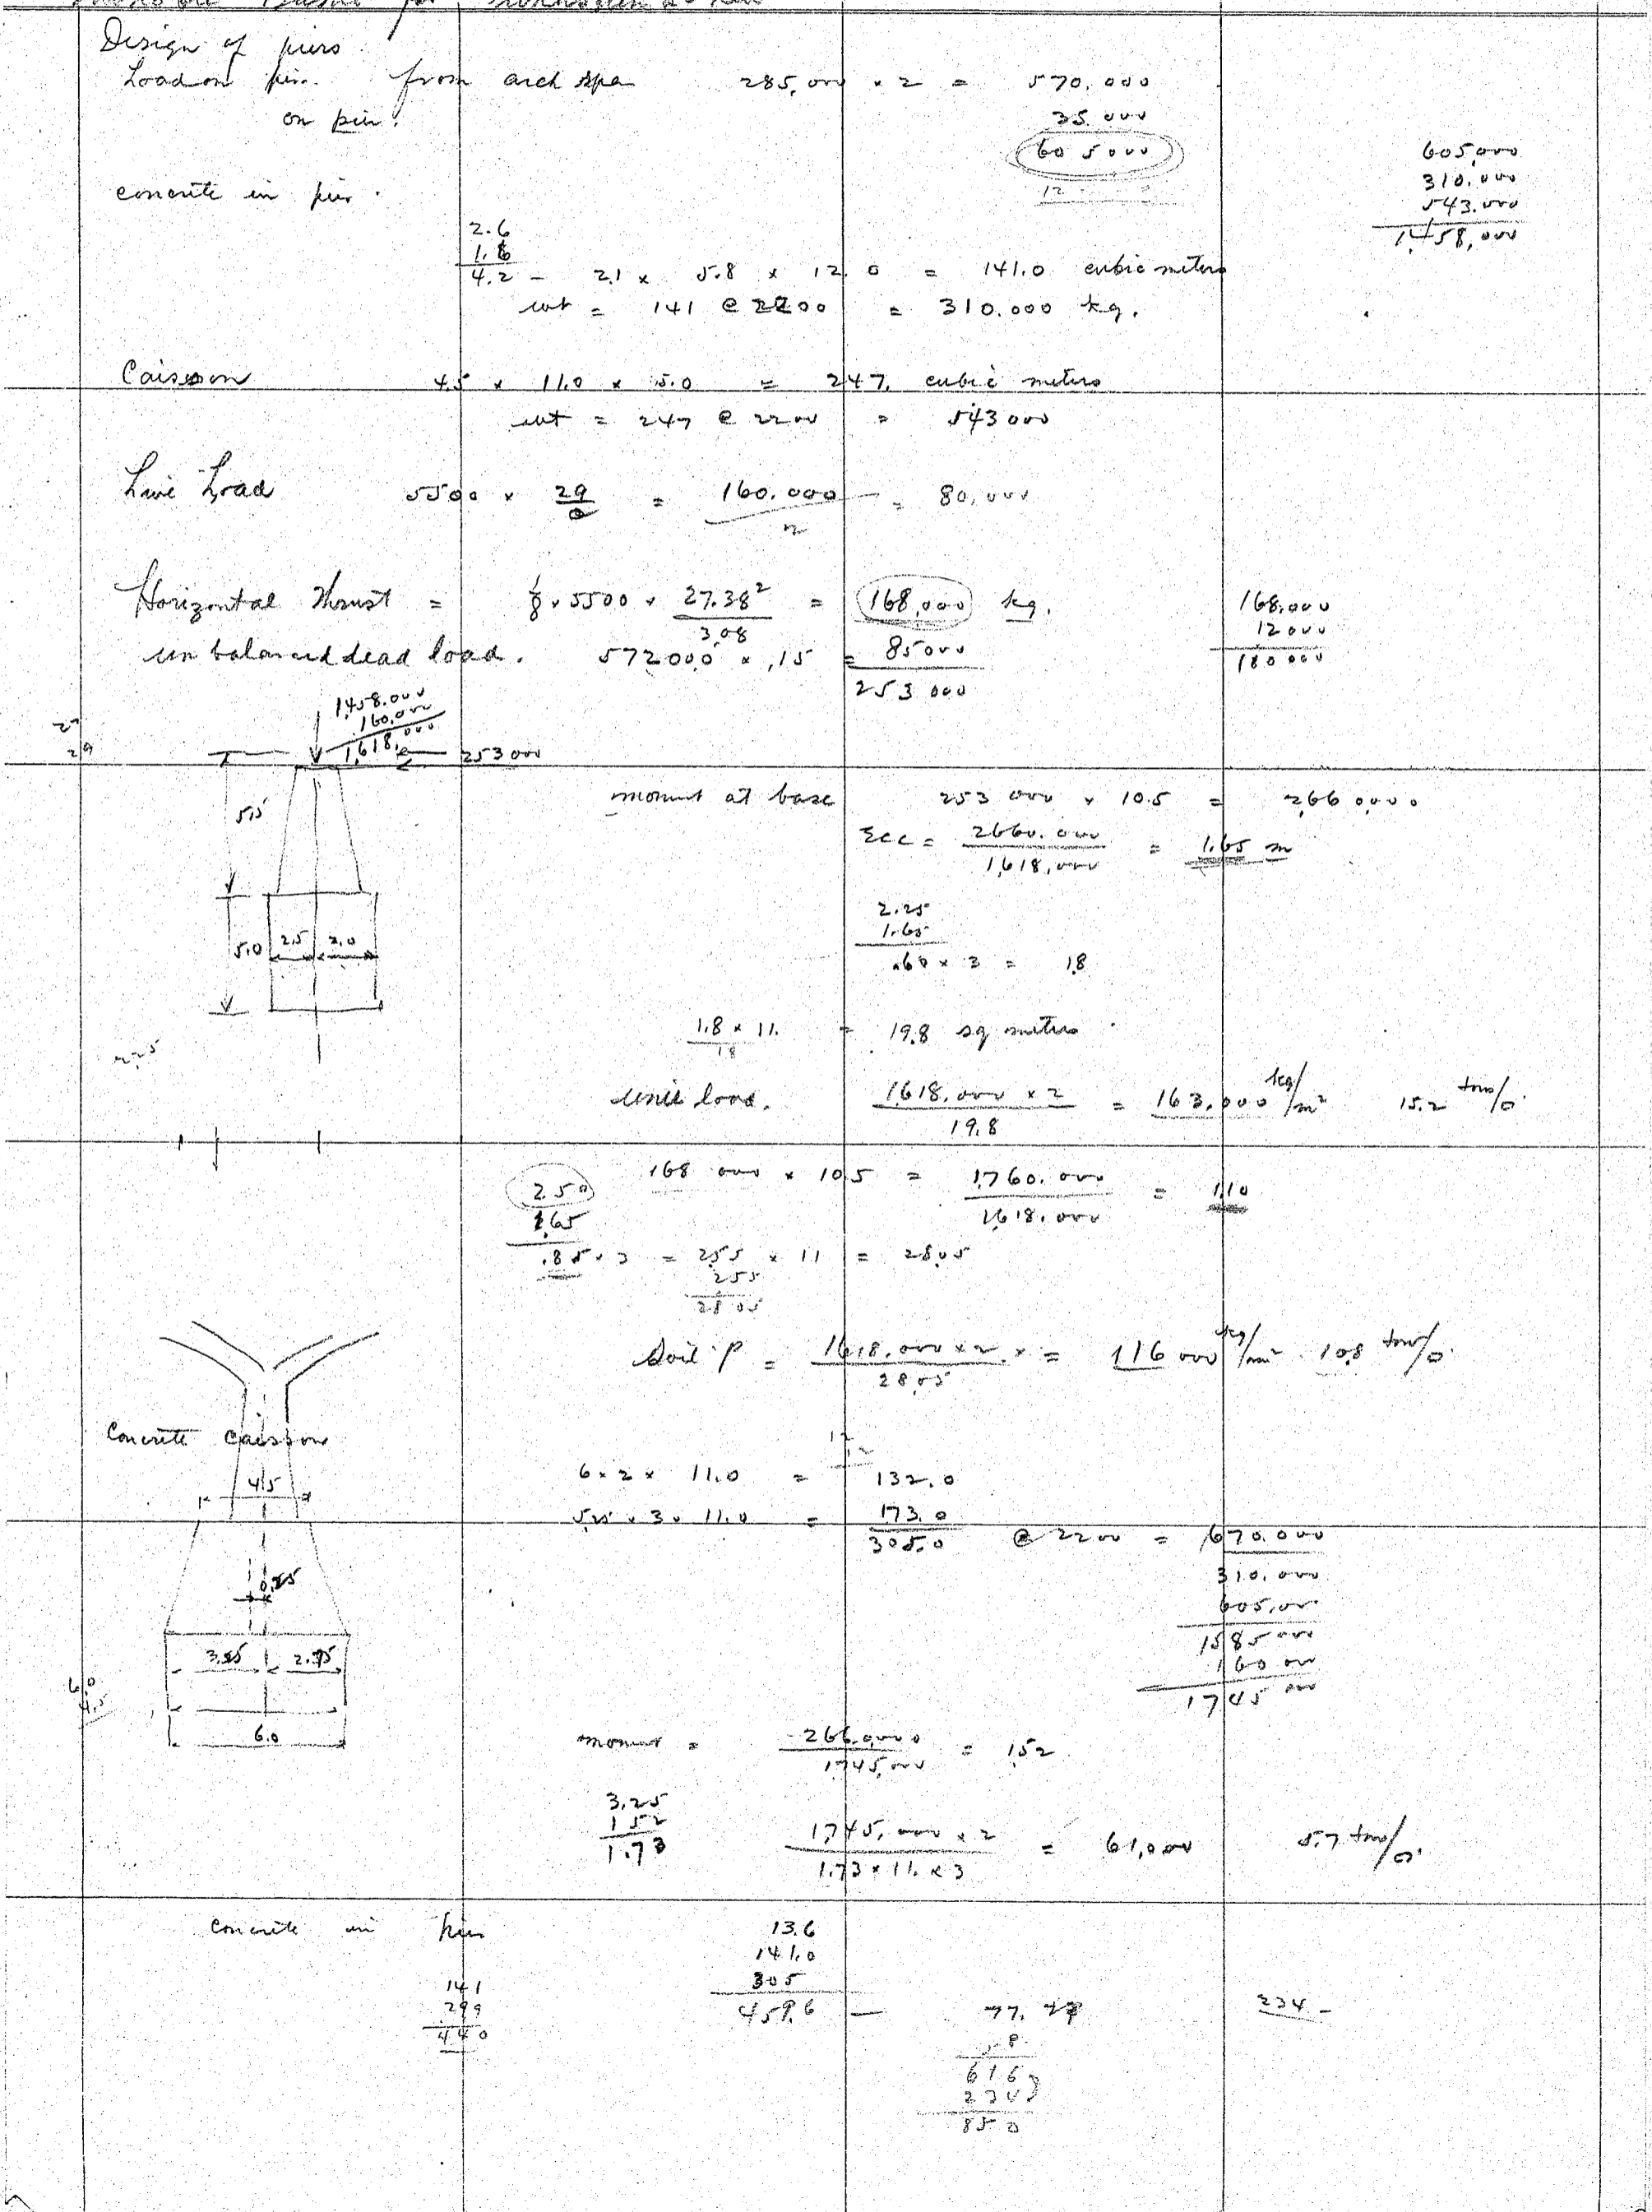 Design of piers
Load on pier. from arch span 285,000 × 2 = 570.000
on pier: 35 000
605000
12
605,000
310.000
543.000
1,458,000
concrete in pier.
2.6
1.6
4.2 - 2.1 × 5.8 × 12.0 = 141.0 cubic meters
wt = 141 @ 2200 = 310.000 kg.
Caisson 4.5 × 11.0 × 5.0 = 247. cubic meters
wt = 247 @ 2200 = 543000
Live Load 5500 × 29 = 160.000 = 80,000
2
Horizontal Thrust = 1/8 × 5500 × 27.38² / 3.08 = 168,000 kg.
unbalanced dead load. 572000 × .15 = 85000
253 000
168,000
12000
180000
1,458.000
160,000
1,618,000
27
29
253000
5.5
moment at base 253 000 × 10.5 = 2660000
Ecc = 2660.000 / 1,618,000 = 1.65 m
2.25
1.65
.60 × 3 = 1.8
5.0 2.5 2.0
1.8 × 11. = 19.8 sq meters
18
2.25
unit load. 1618,000 × 2 / 19.8 = 163,000 kg/m² 15.2 tons/□'
168 000 × 10.5 = 1,760.000 / 1,618.000 = 1.10
2.50
1.65
.85 × 3 = 2.55 × 11 = 28.05
2 55
28 05
Soil P = 1618,000 × 2 × / 28.05 = 116 000 kg/m² 10.8 tons/□'
Concrete caisson
4.5
6 × 2 × 11.0 = 132.0
5.25 × 3 × 11.0 = 173.0
305.0 @ 2200 = 670.000
310.000
605,00
1585000
160 00
1745 000
0.25
3.25 2.75
6.0
4.5
6.0
moment = 2660000 / 1745,000 = 1.52
3.25
1 52
1.73
1,745,000 × 2 / 1.73 × 11. × 3 = 61,000 5.7 tons/□'
concrete in pier
13.6
141.0
305
459.6 — 77.
234 -
141
299
440
8
616
234
850